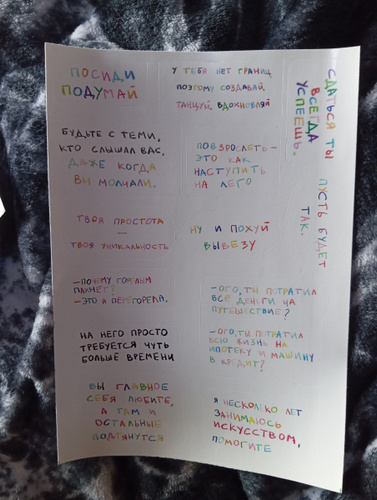 ПОСИДИ
ПОДУМАЙ
У ТЕБЯ НЕТ ГРАНИЦ
ПОЭТОМУ СОЗДАВАЙ,
ТАНЦУЙ, ВДОХНОВЛЯЙ
СДАТЬСЯ ТЫ
ВСЕГДА
УСПЕЕШЬ.
БУДЬТЕ С ТЕМИ,
КТО СЛЫШАЛ ВАС,
ДАЖЕ КОГДА
ВЫ МОЛЧАЛИ.
ПОВЗРОСЛЕТЬ –
ЭТО КАК
НАСТУПИТЬ
НА ЛЕГО
ПУСТЬ БУДЕТ
ТАК.
ТВОЯ ПРОСТОТА
—
ТВОЯ УНИКАЛЬНОСТЬ
НУ И ПОХУЙ
ВЫВЕЗУ
–ПОЧЕМУ ГОРЕЛЫМ
ПАХНЕТ?
–ЭТО Я ПЕРЕГОРЕЛА.
–ОГО, ТЫ ПОТРАТИЛ
ВСЕ ДЕНЬГИ НА
ПУТЕШЕСТВИЕ?
–ОГО, ТЫ ПОТРАТИЛ
ВСЮ ЖИЗНЬ НА
ИПОТЕКУ И МАШИНУ
В КРЕДИТ?
НА НЕГО ПРОСТО
ТРЕБУЕТСЯ ЧУТЬ
БОЛЬШЕ ВРЕМЕНИ
ВЫ ГЛАВНОЕ
СЕБЯ ЛЮБИТЕ,
А ТАМ И
ОСТАЛЬНЫЕ
ПОДТЯНУТСЯ
Я НЕСКОЛЬКО ЛЕТ
ЗАНИМАЮСЬ
ИСКУССТВОМ,
ПОМОГИТЕ